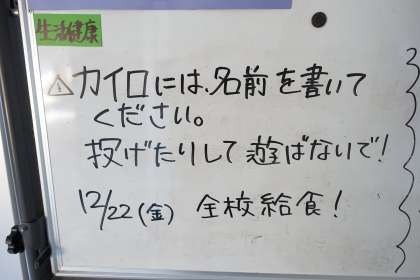 生活健康
⚠カイロには、名前を書いて
ください。
投げたりして遊ばないで!
12/22(金) 全校給食!